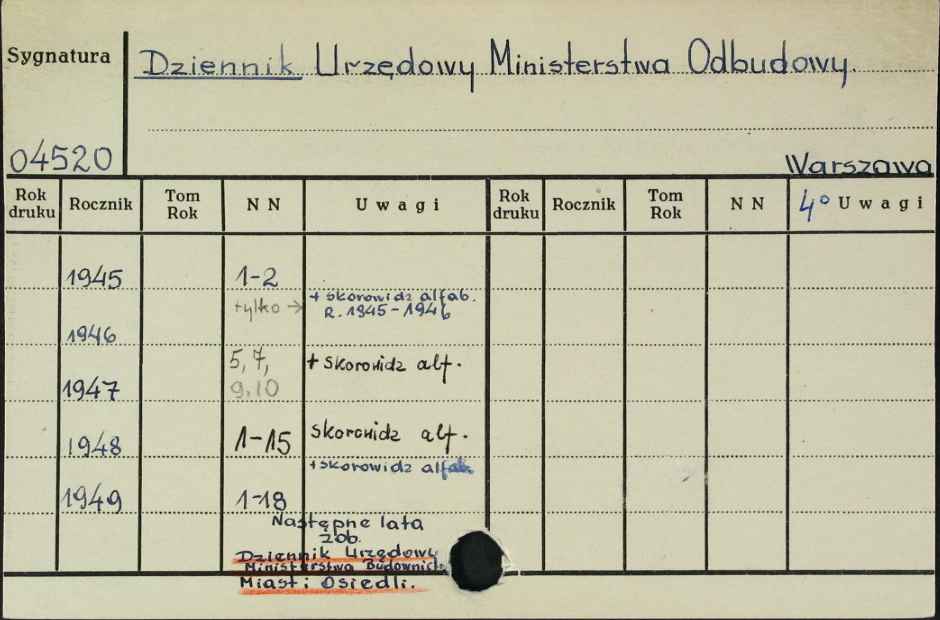 Sygnatura
Dziennik Urzędowy Ministerstwa Odbudowy.
04520
Warszawa
Rok druku Rocznik Tom Rok NN Uwagi Rok druku Rocznik Tom Rok NN 4° Uwagi
1945 1-2
tylko → + skorowidz alfab.
R. 1945-1946
1946
5, 7, + skorowidz alf.
1947 9, 10
1948 1-15 skorowidz alf.
+ skorowidz alfab.
1949 1-18
Następne lata
zob.
Dziennik Urzędowy
Ministerstwa Budownictw
Miast i Osiedli.